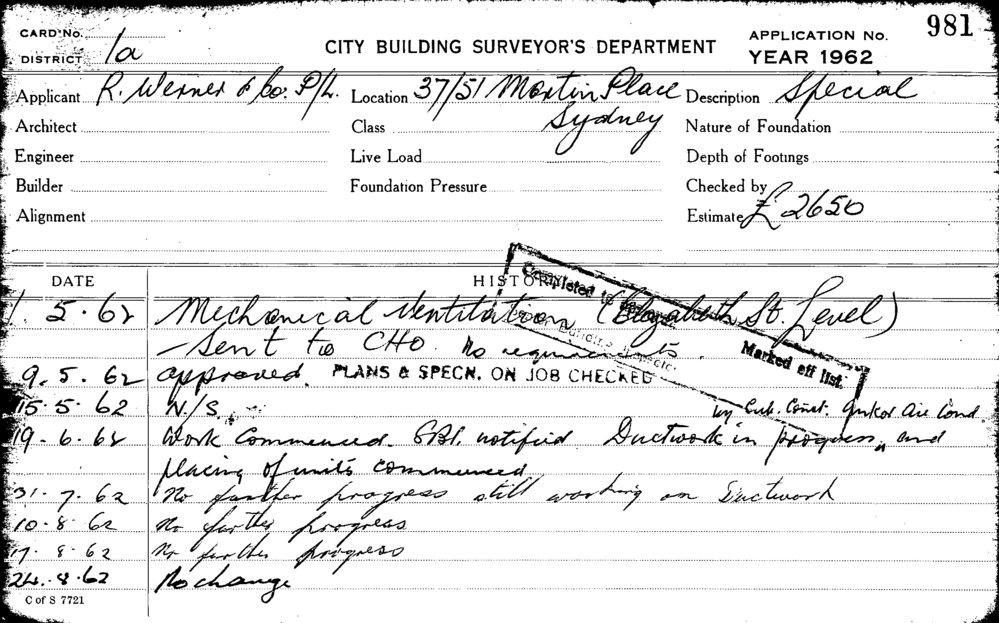 CARD No.
DISTRICT 1a
CITY BUILDING SURVEYOR'S DEPARTMENT
APPLICATION No. 981
YEAR 1962
Applicant R. Werner & Co. P/L. Location 37/51 Martin Place Sydney Description Special
Architect Class Nature of Foundation
Engineer Live Load Depth of Footings
Builder Foundation Pressure Checked by
Alignment Estimate £ 2650
DATE HISTORY
1. 5. 62 Mechanical Ventilation (Elizabeth St. Level)
- Sent to CHO. No requirements.
Completed to
Marked off list.
9. 5. 62 approved. PLANS & SPECN. ON JOB CHECKED
15. 5. 62 N/S.
by Sub. Const. Air Cond
19. 6. 62 Work Commenced. notified Ductwork in progress, and
placing of units commenced
31. 7. 62 No further progress still working on Ductwork
10. 8. 62 No further progress
17. 8. 62 No further progress
24. 8. 62 No change
C of S 7721